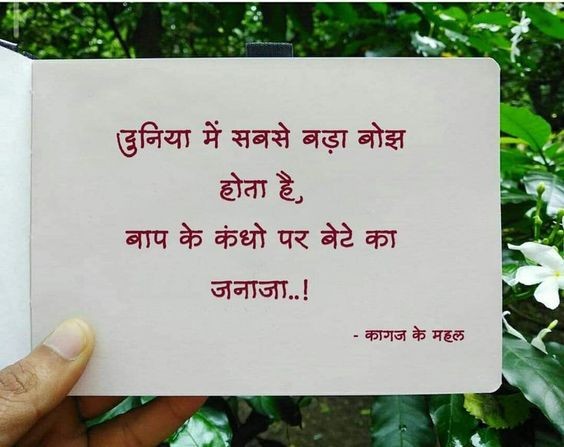 दुनिया में सबसे बड़ा बोझ
होता है,
बाप के कंधो पर बेटे का
जनाजा..!
- कागज के महल